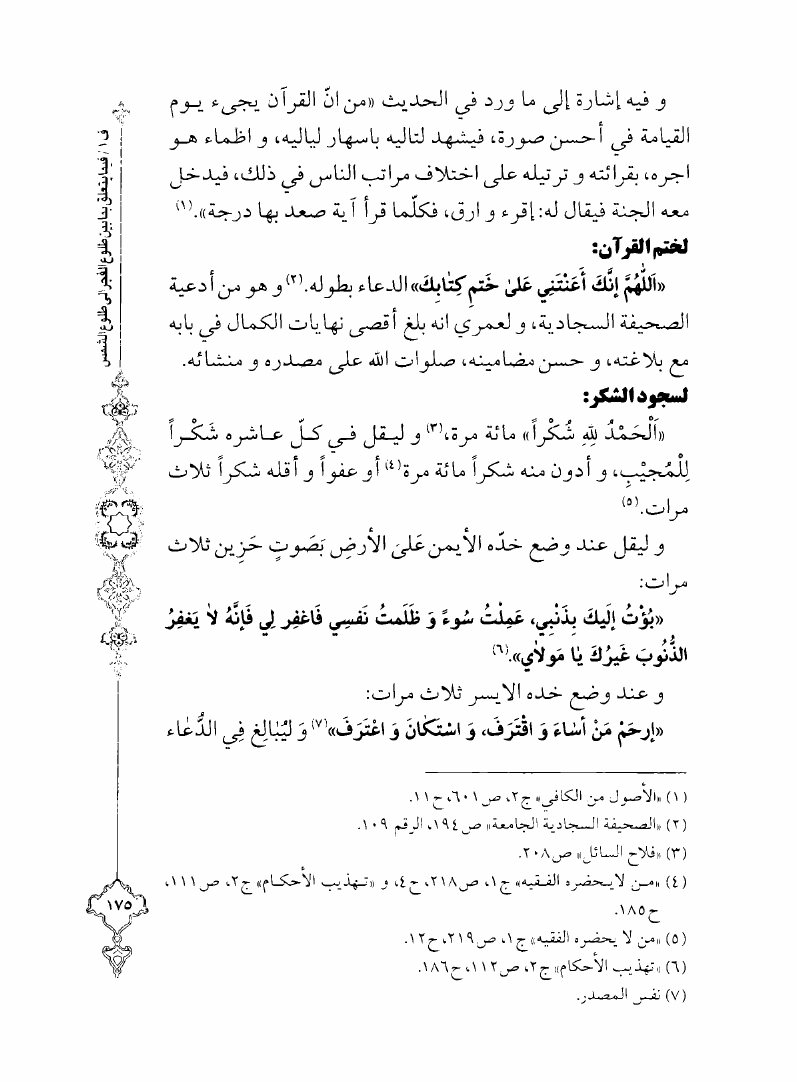 و فيه إشارة إلى ما ورد في الحديث «من انّ القرآن يجيء يـوم
القيامة في أحسن صورة، فيشهد لتاليه باسهار لياليه، و اظماء هـو
اجره، بقرائته و ترتيله على اختلاف مراتب الناس في ذلك، فيدخل
معه الجنة فيقال له: إقرء و ارق، فكلّما قرأ آية صعد بها درجة».(١)
لختم القرآن:
«اَللّٰهُمَّ إِنَّكَ أَعَنْتَنِي عَلىٰ خَتمِ كِتٰابِكَ» الدعاء بطوله.(٢) و هو من أدعية
الصحيفة السجادية، و لعمري انه بلغ أقصى نهايات الكمال في بابه
مع بلاغته، و حسن مضامينه، صلوات الله على مصدره و منشائه.
لسجود الشكر:
«اَلْحَمْدُ لِلّهِ شُكْراً» مائة مرة،(٣) و ليـقل فـي كـلّ عـاشره شَكْـراً
لِلْمُجيْبِ، و أدون منه شكراً مائة مرة(٤) أو عفواً و أقله شكراً ثلاث
مرات.(٥)
و ليقل عند وضع خدّه الأيمن عَلىَ الأرضِ بَصَوتٍ حَزِين ثلاث
مرات:
«بُؤْتُ إلَيكَ بِذَنْبِي، عَمِلْتُ سُوءً وَ ظَلَمتُ نَفسِي فَاغفِر لِي فَإنَّهُ لاٰ يَغفِرُ
الذُّنُوبَ غَيرُكَ يٰا مَولاٰي».(٦)
و عند وضع خده الايسر ثلاث مرات:
«إرحَمْ مَنْ أسٰاءَ وَ اقْتَرَفَ، وَ اسْتَكٰانَ وَ اعْتَرَفَ»(٧) وَ ليُبٰالِغ فِي الدُّعٰاء
(١) «الأصول من الكافي» ج٢، ص٦٠١، ح١١.
(٢) «الصحيفة السجادية الجامعة» ص١٩٤، الرقم ١٠٩.
(٣) «فلاح السائل» ص٢٠٨.
(٤) «مـن لايـحضره الفـقيه» ج١، ص٢١٨، ح٤، و «تـهذيب الأحكـام» ج٢، ص١١١،
ح١٨٥.
(٥) «من لا يحضره الفقيه» ج١، ص٢١٩، ح١٢.
(٦) «تهذيب الأحكام» ج٢، ص١١٢، ح١٨٦.
(٧) نفس المصدر.
ف١ / فيما يتعلق بما بين طلوع الفجر إلى طلوع الشمس
١٧٥